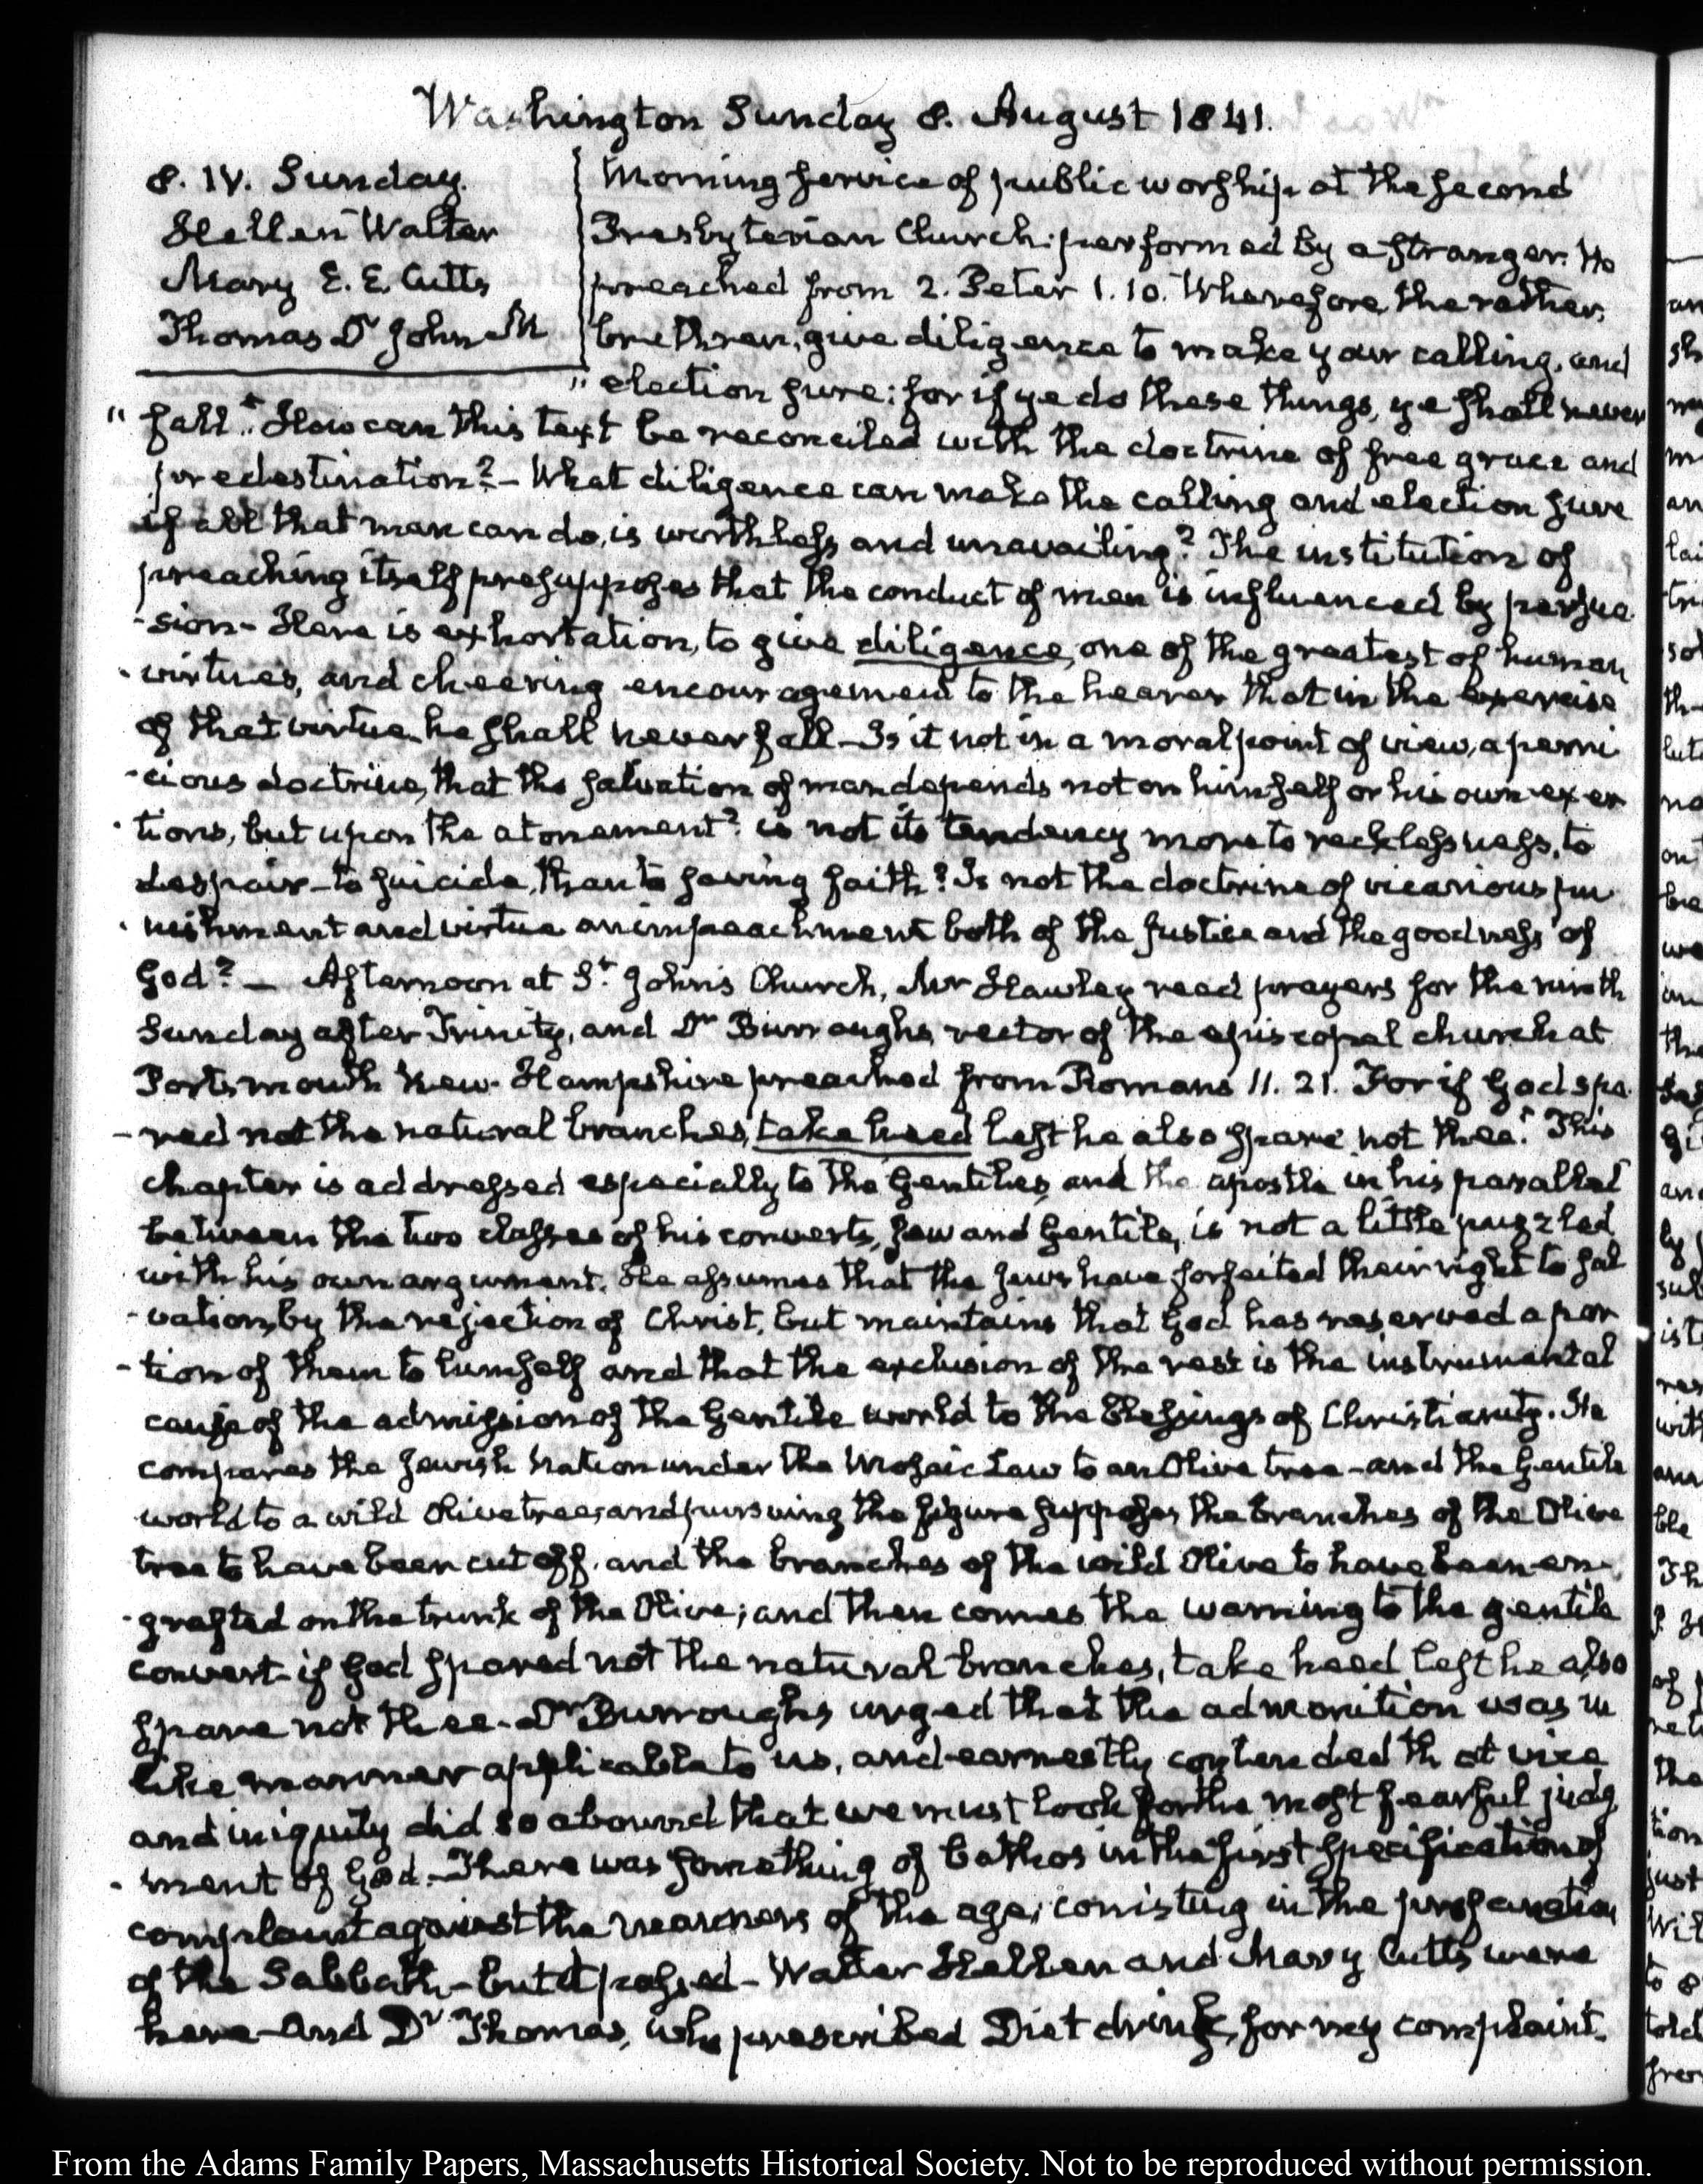 Washington Sunday 8. August 1841.
8. IV. Sunday.
Hellen Walter
Mary E. E. Cutts
Thomas Dr John M
Morning service of public worship at the second
Presbyterian Church: performed by a stranger. He
preached from 2. Peter 1.10. "Wherefore the rather,
brethren, give diligence to make your calling, and
" election sure: for if ye do these things, ye shall never
" fall." How can this text be reconciled with the doctrine of free grace and
predestination? - What diligence can make the calling and election sure
if all that man can do, is worthless and unavailing? The institution of
preaching itself presupposes that the conduct of men is influenced by persua
-sion - Here is exhortation, to give diligence, one of the greatest of human
virtues, and cheering encouragement to the hearer that in the exercise
of that virtue he shall never fall - Is it not in a moral point of view, a perni
-cious doctrine, that the salvation of man depends not on himself or his own exer
-tions, but upon the atonement? is not its tendency more to recklessness, to
despair - to suicide, than to saving faith? Is not the doctrine of vicarious pu
-nishment and virtue an impeachment both of the justice and the goodness of
God? - Afternoon at St. John's Church, Mr Hawley read prayers for the ninth
Sunday after Trinity, and Dr Burroughs, rector of the episcopal church at
Portsmouth New-Hampshire preached from Romans 11. 21. For if God spa
-red not the natural branches, take heed lest he also spare not thee." This
chapter is addressed especially to the Gentiles, and the apostle in his parallel
between the two classes of his converts, Jew and Gentile, is not a little puzzled
with his own argument. He assumes that the Jews have forfeited their right to sal
-vation, by the rejection of Christ, but maintains that God has reserved a por
-tion of them to himself and that the exclusion of the rest is the instrumental
cause of the admission of the Gentile world to the blessings of Christianity. He
compares the Jewish Nation under the Mosaic Law to an Olive tree - and the Gentile
world to a wild Olive tree, and pursuing the figure supposes the branches of the Olive
tree to have been cut off, and the branches of the wild Olive to have been en
-grafted on the trunk of the Olive; and then comes the warning to the gentile
convert - if God spared not the natural branches, take heed lest he also
spare not thee - Dr Burroughs urged that the admonition was in
like manner applicable to us, and earnestly contended that vice
and iniquity did so abound that we must look for the most fearful judg
-ment of God. There was something of bathos in the first specification of
complaint against the the age; consisting in the profanation
of the Sabbath - but it passed - Walter Hellen and Mary Cutts were
here - And Dr Thomas, who prescribed Diet drink, for my complaint.
From the Adams Family Papers, Massachusetts Historical Society. Not to be reproduced without permission.